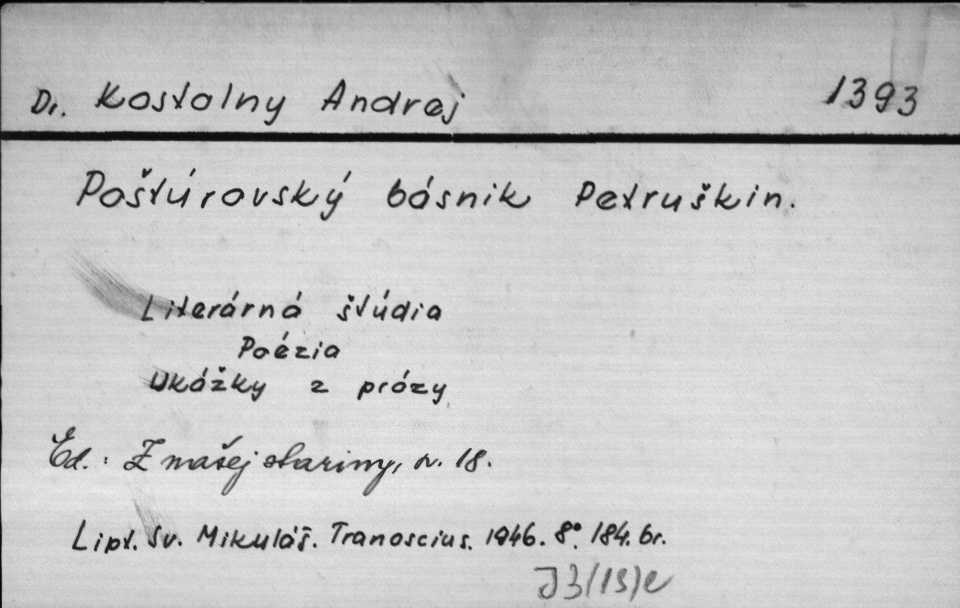 Dr. Kostolny Andrej 1393
Poštúrovský básnik Petruškin.
Literárná štúdia
Poézia
Ukážky z prózy
Ed.: Z našej stariny, sv. 18.
Lipt. Sv. Mikuláš. Tranoscius. 1946. 8° 184. br.